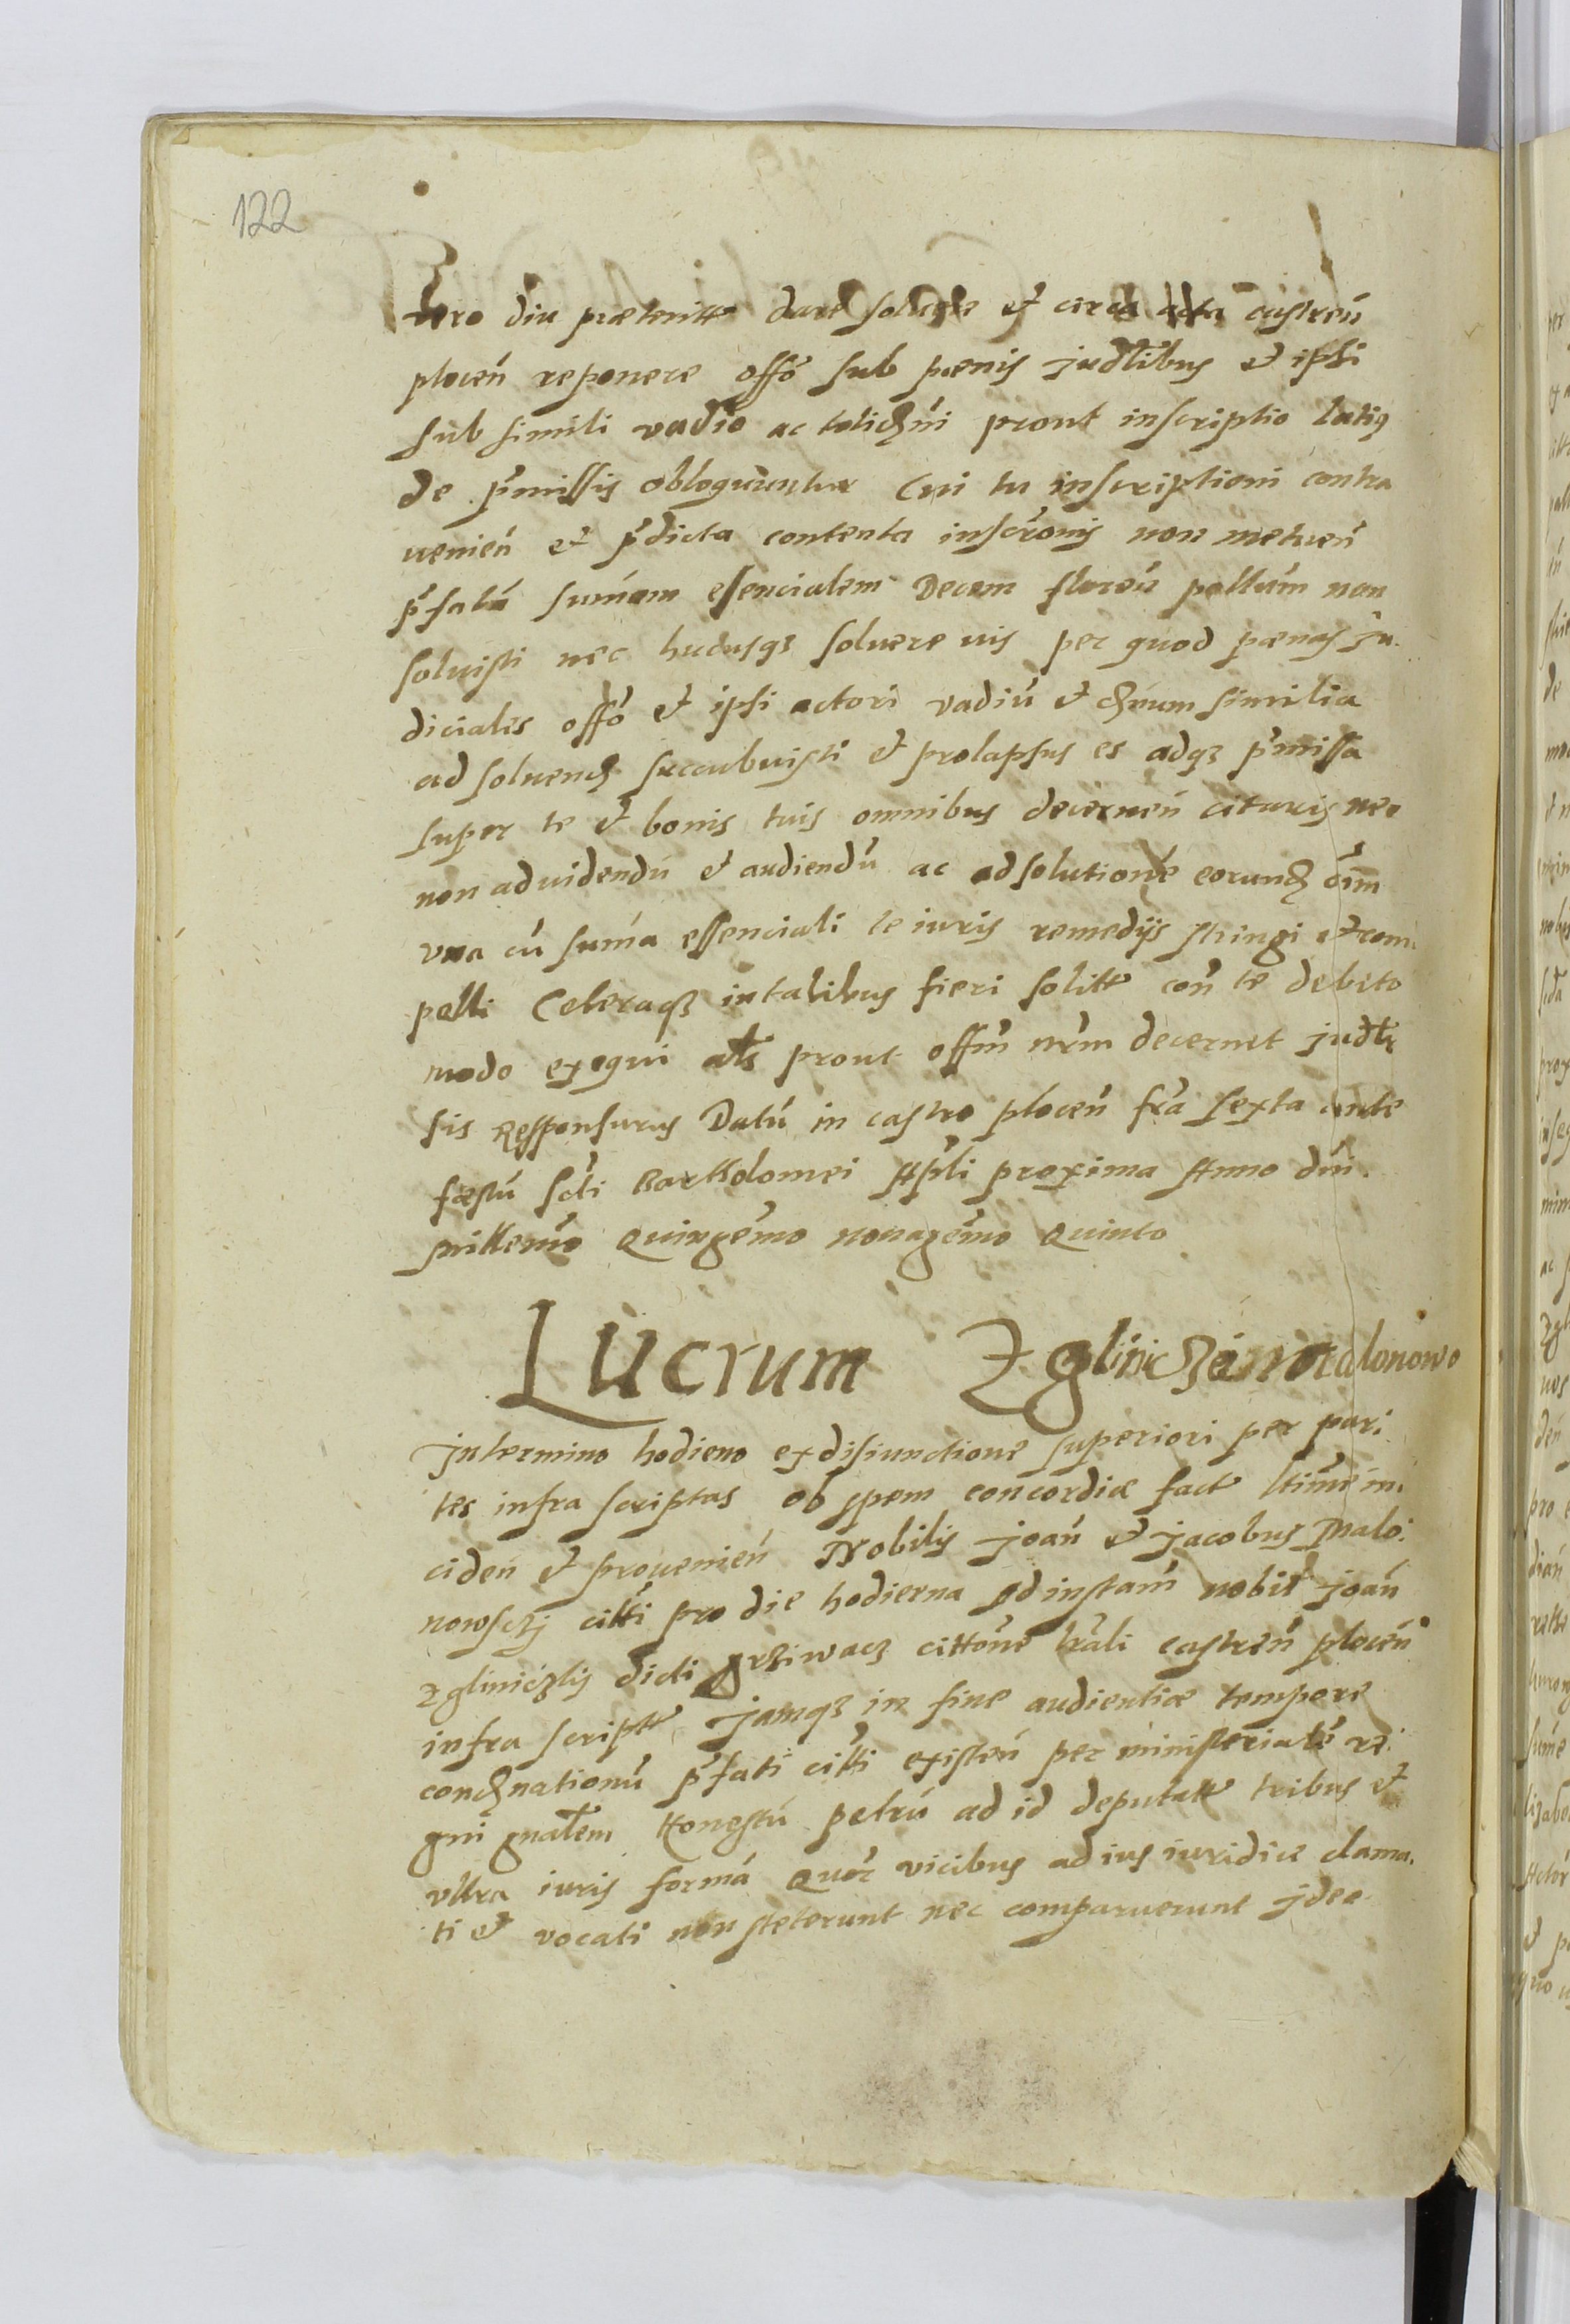 122
vero diu præteritt dare soluere et circa acta castreń
ploceń reponere offo sub pænis judlibus et ipsi
sub simili vadio ac talidmi prout inscriptio latius
de pmissis obloquuntur Cui tu inscriptioni contra
venień et pdicta contenta inscronis non metueń
pfatā sumam essencialem Decem floreń pollum non
solvisti nec hucusqz solvere vis per quod pænas ju
diciales offo et ipsi actori vadiū et dmnum similia
ad soluend succubuisti et prolapsus es adqz pmissa
super te et bonis tuis omnibus decerneń citaris nec
non ad videndū et audiendū ac ad solutione eorund oīm
vna cū suma essenciali te iuris remedijs stringi et com
pelli Ceteraqz in talibus fieri solitt coń te debito
modo exequi als prout offm nrm decernet judlr
sis Responsurus Datū in castro ploceń fra sexta ante
fæstū scti Bartholomei Apli proxima Anno dni
millemo Quingemo nonagemo Quinto
Lucrum Zgliniczki no Malonowo
In termino hodierno ex disiunctione superiori per par
tes infra scriptas ob spem concordiæ fact ltime in
cideń et provenień Nobilis joań et jacobus Malo
nowsczj citti pro die hodierna ad instam nobil joań
Zgliniczkij dicti grziwacz cittone lrali castreń ploceń
infra scriptt jamqz in fine audientiæ tempore
condnationū pfati citti existeń per ministerialē re
gni gnalem Honestū petrū ad id deputatt tribus et
vltra iuris formā Quor vicibus ad ius iuridice clama
ti et vocati non steterunt nec comparuerunt jdeo